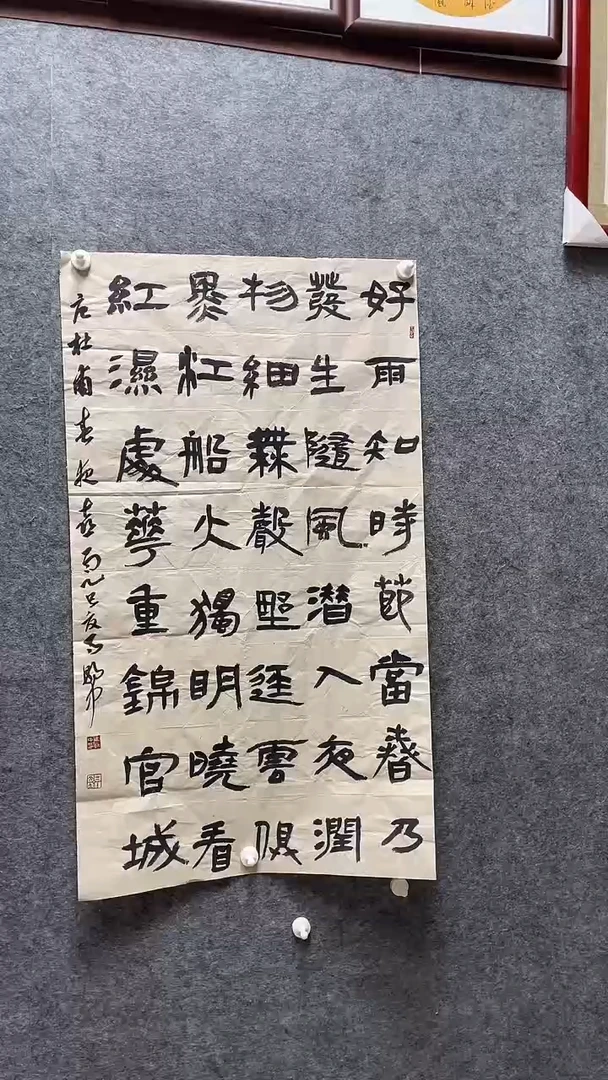 好雨知時節當春乃
發生隨風潛入夜潤
物細無聲野徑雲俱
黑江船火獨明曉看
紅濕處華重錦官城
右杜甫春夜喜雨乙巳夏月